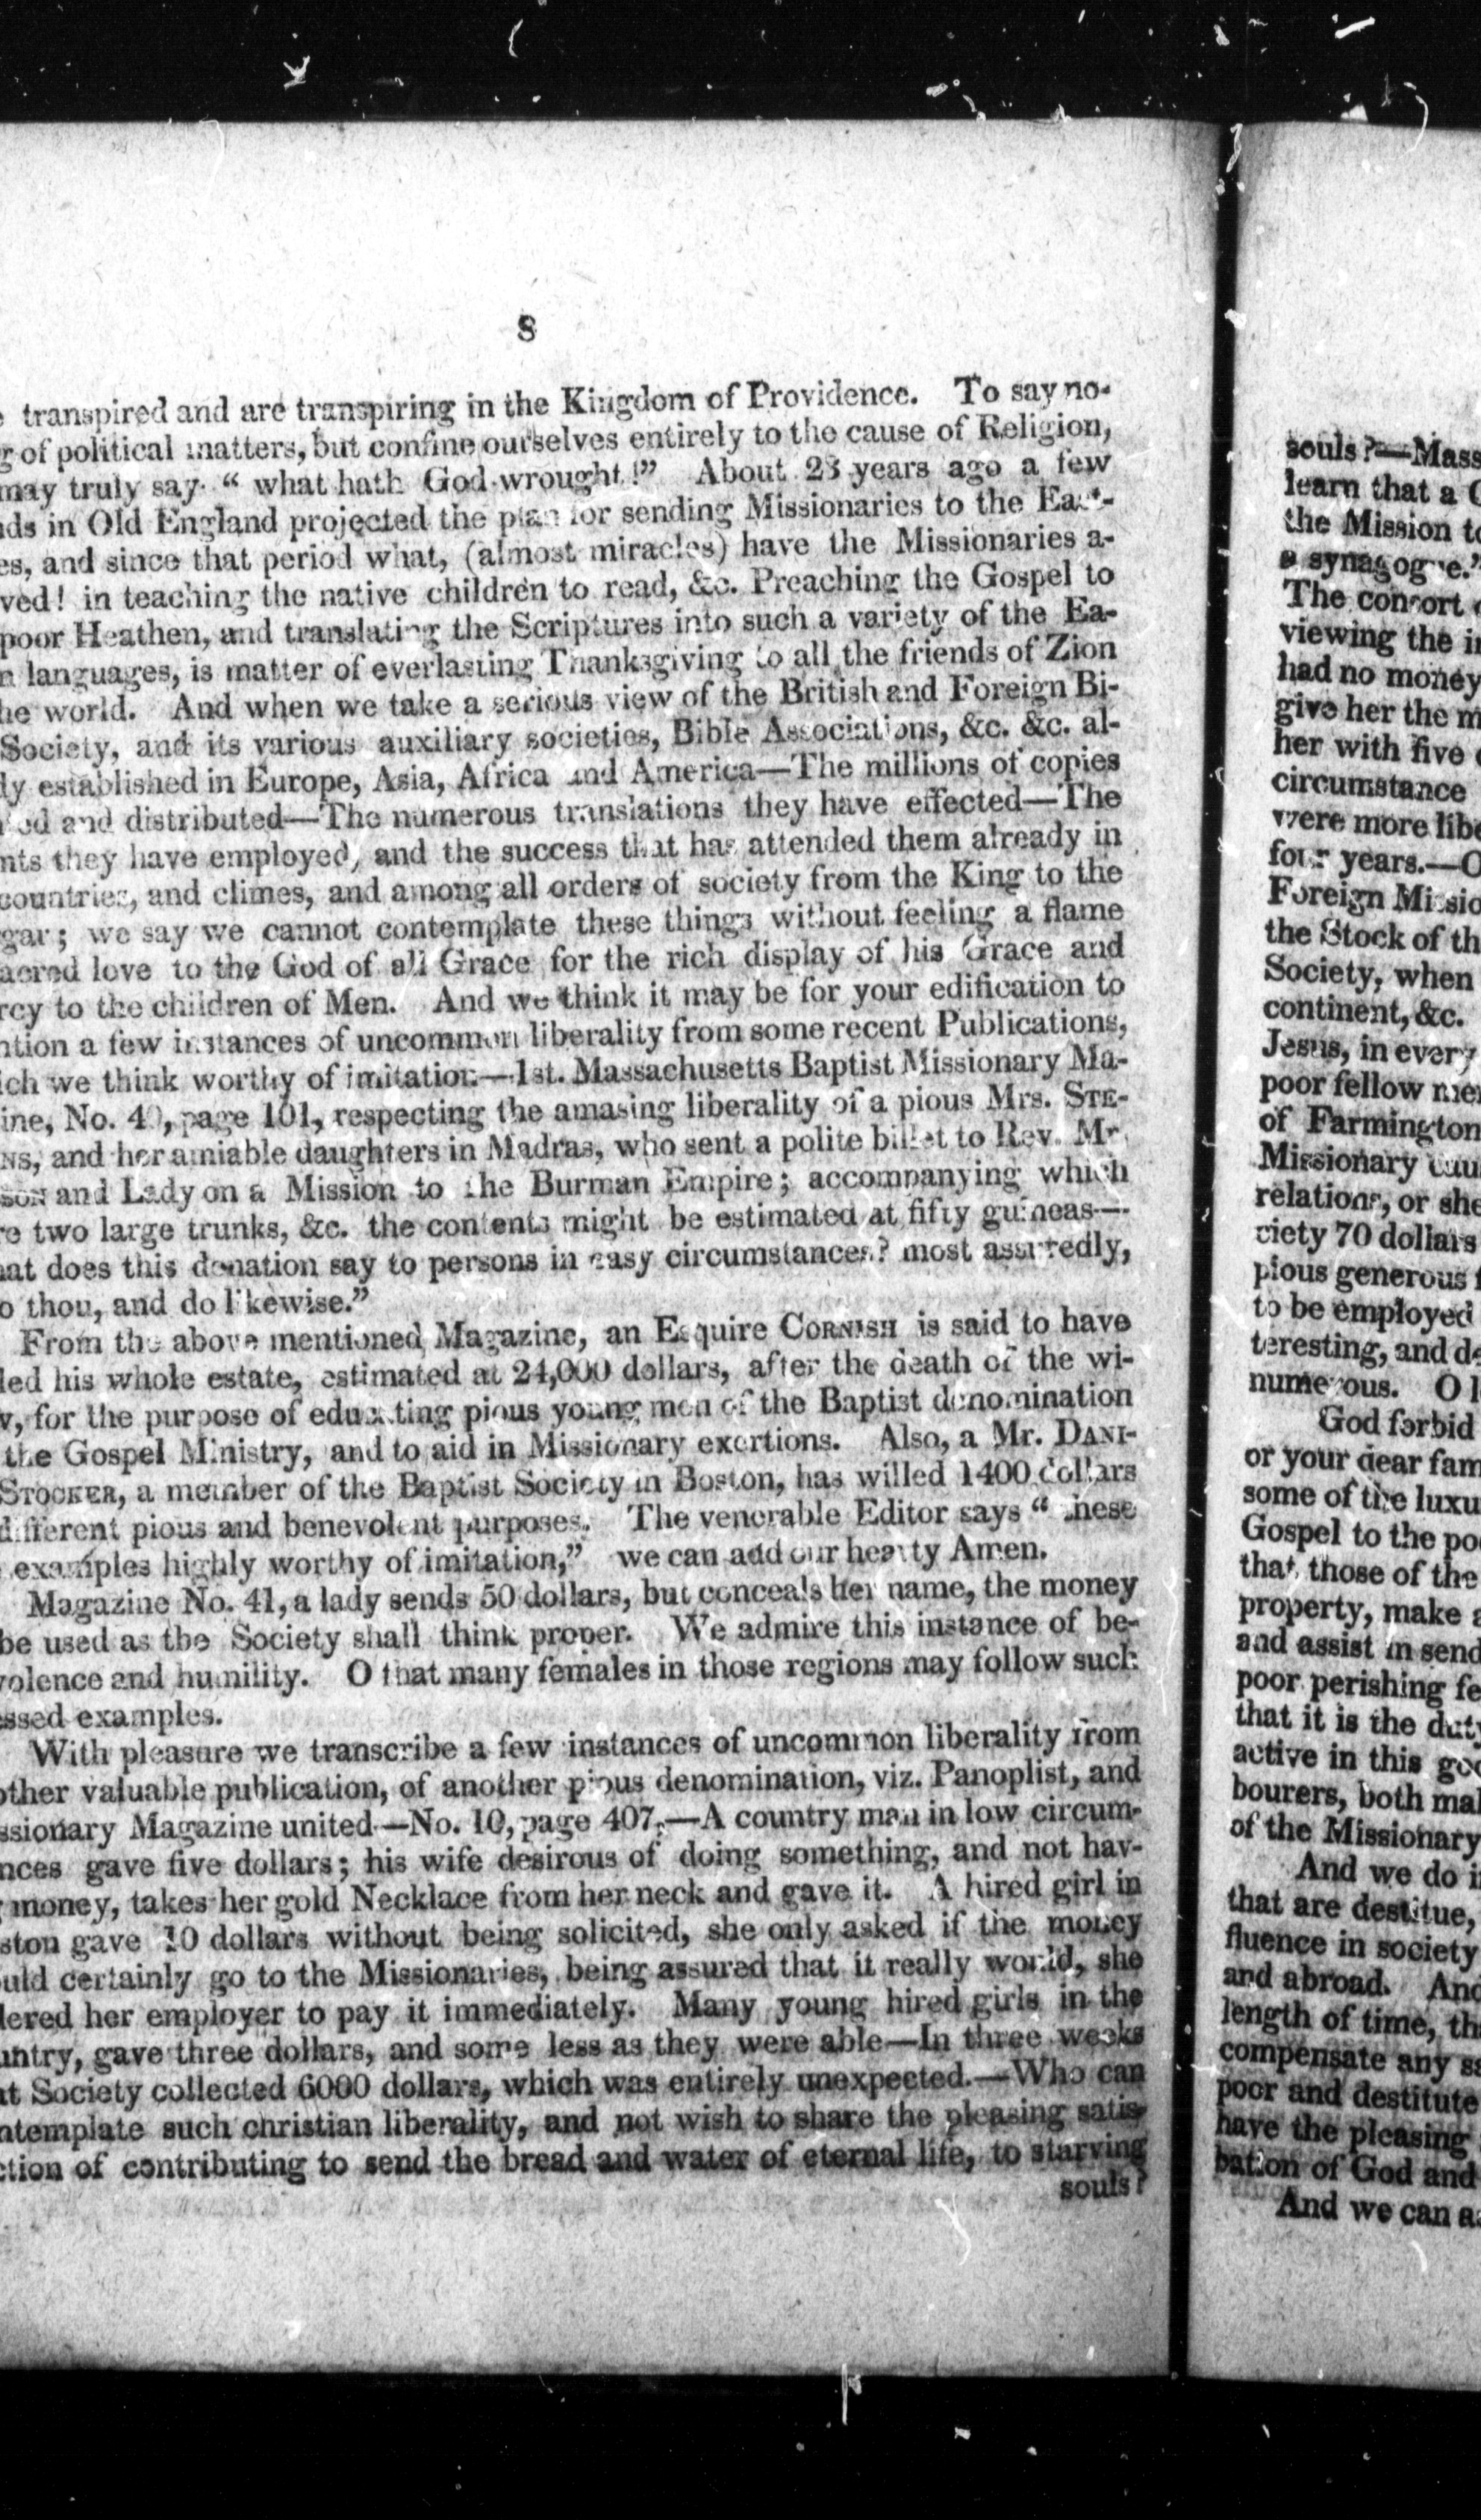 8
transpired and are transpiring in the Kingdom of Providence. To say no-
of political matters, but confine ourselves entirely to the cause of Religion,
may truly say “ what hath God wrought !” About 23 years ago a few
nds in Old England projected the plan for sending Missionaries to the East-
es, and since that period what, (almost miracles) have the Missionaries a-
ved! in teaching the native children to read, &c. Preaching the Gospel to
poor Heathen, and translating the Scriptures into such a variety of the Ea-
n languages, is matter of everlasting Thanksgiving to all the friends of Zion
he world. And when we take a serious view of the British and Foreign Bi-
Society, and its various auxiliary societies, Bible Associations, &c. &c. al-
dy established in Europe, Asia, Africa and America—The millions of copies
ted and distributed—The numerous translations they have effected—The
nts they have employed, and the success that has attended them already in
countries, and climes, and among all orders of society from the King to the
gar; we say we cannot contemplate these things without feeling a flame
acred love to the God of all Grace for the rich display of his Grace and
rcy to the children of Men. And we think it may be for your edification to
ntion a few instances of uncommon liberality from some recent Publications,
ich we think worthy of imitation—1st. Massachusetts Baptist Missionary Ma-
ine, No. 40, page 101, respecting the amasing liberality of a pious Mrs. STE-
NS, and her amiable daughters in Madras, who sent a polite billet to Rev. Mr.
son and Lady on a Mission to the Burman Empire; accompanying which
re two large trunks, &c. the contents might be estimated at fifty guineas—
hat does this donation say to persons in easy circumstances? most assuredly,
o thou, and do likewise.”
From the above mentioned Magazine, an Esquire CORNISH is said to have
led his whole estate, estimated at 24,000 dollars, after the death of the wi-
w, for the purpose of educating pious young men of the Baptist denomination
the Gospel Ministry, and to aid in Missionary exertions. Also, a Mr. DANI-
STOCKER, a member of the Baptist Society in Boston, has willed 1400 dollars
different pious and benevolent purposes. The venerable Editor says “ these
examples highly worthy of imitation,” we can add our hearty Amen.
Magazine No. 41, a lady sends 50 dollars, but conceals her name, the money
be used as the Society shall think proper. We admire this instance of be-
volence and humility. O that many females in those regions may follow such
essed examples.
With pleasure we transcribe a few instances of uncommon liberality from
other valuable publication, of another pious denomination, viz. Panoplist, and
ssionary Magazine united—No. 10, page 407,—A country man in low circum-
nces gave five dollars; his wife desirous of doing something, and not hav-
money, takes her gold Necklace from her neck and gave it. A hired girl in
ston gave 10 dollars without being solicited, she only asked if the money
ould certainly go to the Missionaries, being assured that it really world, she
dered her employer to pay it immediately. Many young hired girls in the
untry, gave three dollars, and some less as they were able—In three weeks
at Society collected 6000 dollars, which was entirely unexpected.—Who can
ntemplate such christian liberality, and not wish to share the pleasing satis-
ction of contributing to send the bread and water of eternal life, to starving
souls?
souls?—Mass
learn that a
the Mission to
a synagogue.”
The consort
viewing the
had no money
give her the m
her with five
circumstance
were more libe
four years.—O
Foreign Missio
the Stock of th
Society, when
continent, &c.
Jesus, in every
poor fellow men
of Farmington
Missionary cau
relations, or she
ciety 70 dollars
pious generous f
to be employed
teresting, and de
numerous. O l
God forbid
or your dear fam
some of the luxu
Gospel to the poo
that those of the
property, make a
and assist in send
poor perishing fe
that it is the duty
active in this goo
bourers, both mal
of the Missionary
And we do i
that are destitue,
fluence in society
and abroad. And
length of time, tha
compensate any sa
poor and destitute
have the pleasing
bation of God and
And we can as